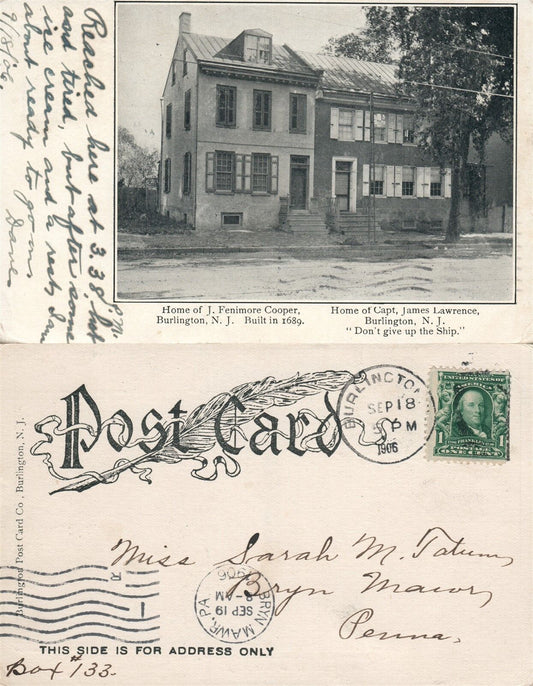 Reached here at 3.38. hot
and tired, but after some
ice cream and a rest, I am
about ready to go on
Dave
9/18/06.
P.M.
Home of J. Fenimore Cooper,
Burlington, N. J. Built in 1689.
Home of Capt, James Lawrence,
Burlington, N. J.
"Don't give up the Ship."
Post Card
BURLINGTON
SEP 18
5 PM
1906
UNITED STATES OF AMERICA
1
1
FRANKLIN
POSTAGE
ONE CENT
Burlington Post Card Co., Burlington, N. J.
Miss Sarah M. Tatum
Bryn Mawr
Penna,
BRYN MAWR, PA
SEP 19
8-AM
1906
THIS SIDE IS FOR ADDRESS ONLY
Box #133.